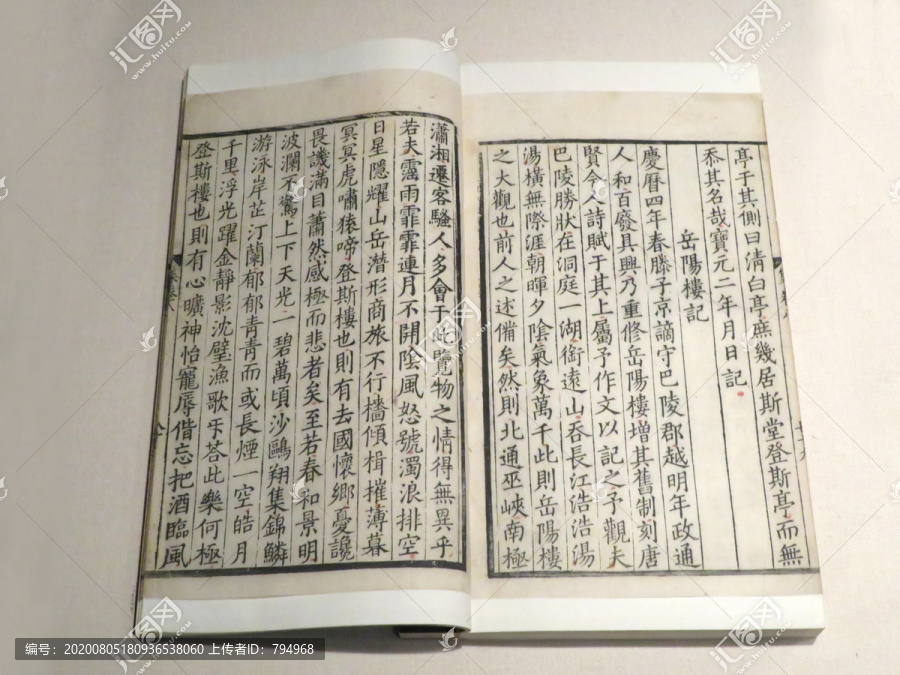 亭于其側曰清白亭庶幾居斯堂登斯亭而無
忝其名哉寶元二年月日記
岳陽樓記
慶曆四年春滕子京謫守巴陵郡越明年政通
人和百廢具興乃重修岳陽樓增其舊制刻唐
賢今人詩賦于其上屬予作文以記之予觀夫
巴陵勝狀在洞庭一湖銜遠山吞長江浩浩湯
湯橫無際涯朝暉夕陰氣象萬千此則岳陽樓
之大觀也前人之述備矣然則北通巫峽南極
瀟湘遷客騷人多會于此覽物之情得無異乎
若夫霪雨霏霏連月不開陰風怒號濁浪排空
日星隱耀山岳潛形商旅不行檣傾楫摧薄暮
冥冥虎嘯猿啼登斯樓也則有去國懷鄉憂讒
畏譏滿目蕭然感極而悲者矣至若春和景明
波瀾不驚上下天光一碧萬頃沙鷗翔集錦鱗
游泳岸芷汀蘭郁郁青青而或長煙一空皓月
千里浮光躍金靜影沈璧漁歌互荅此樂何極
登斯樓也則有心曠神怡寵辱偕忘把酒臨風
汇图网
www.huitu.com
编号：20200805180936538060 上传者ID：794968